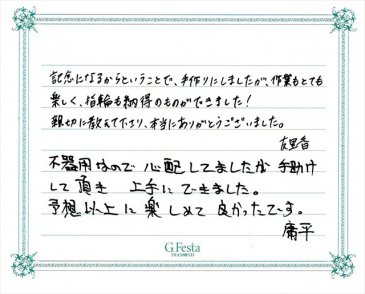 記念になるからということで、手作りにしましたが、作業もとても
楽しく、指輪も納得のものができました!
親切に教えて下さり、本当にありがとうございました。
友里香
不器用なので心配してましたが手助け
して頂き 上手にできました。
予想以上に楽しめて良かったです。
庸平
G.Festa
DIAMOND